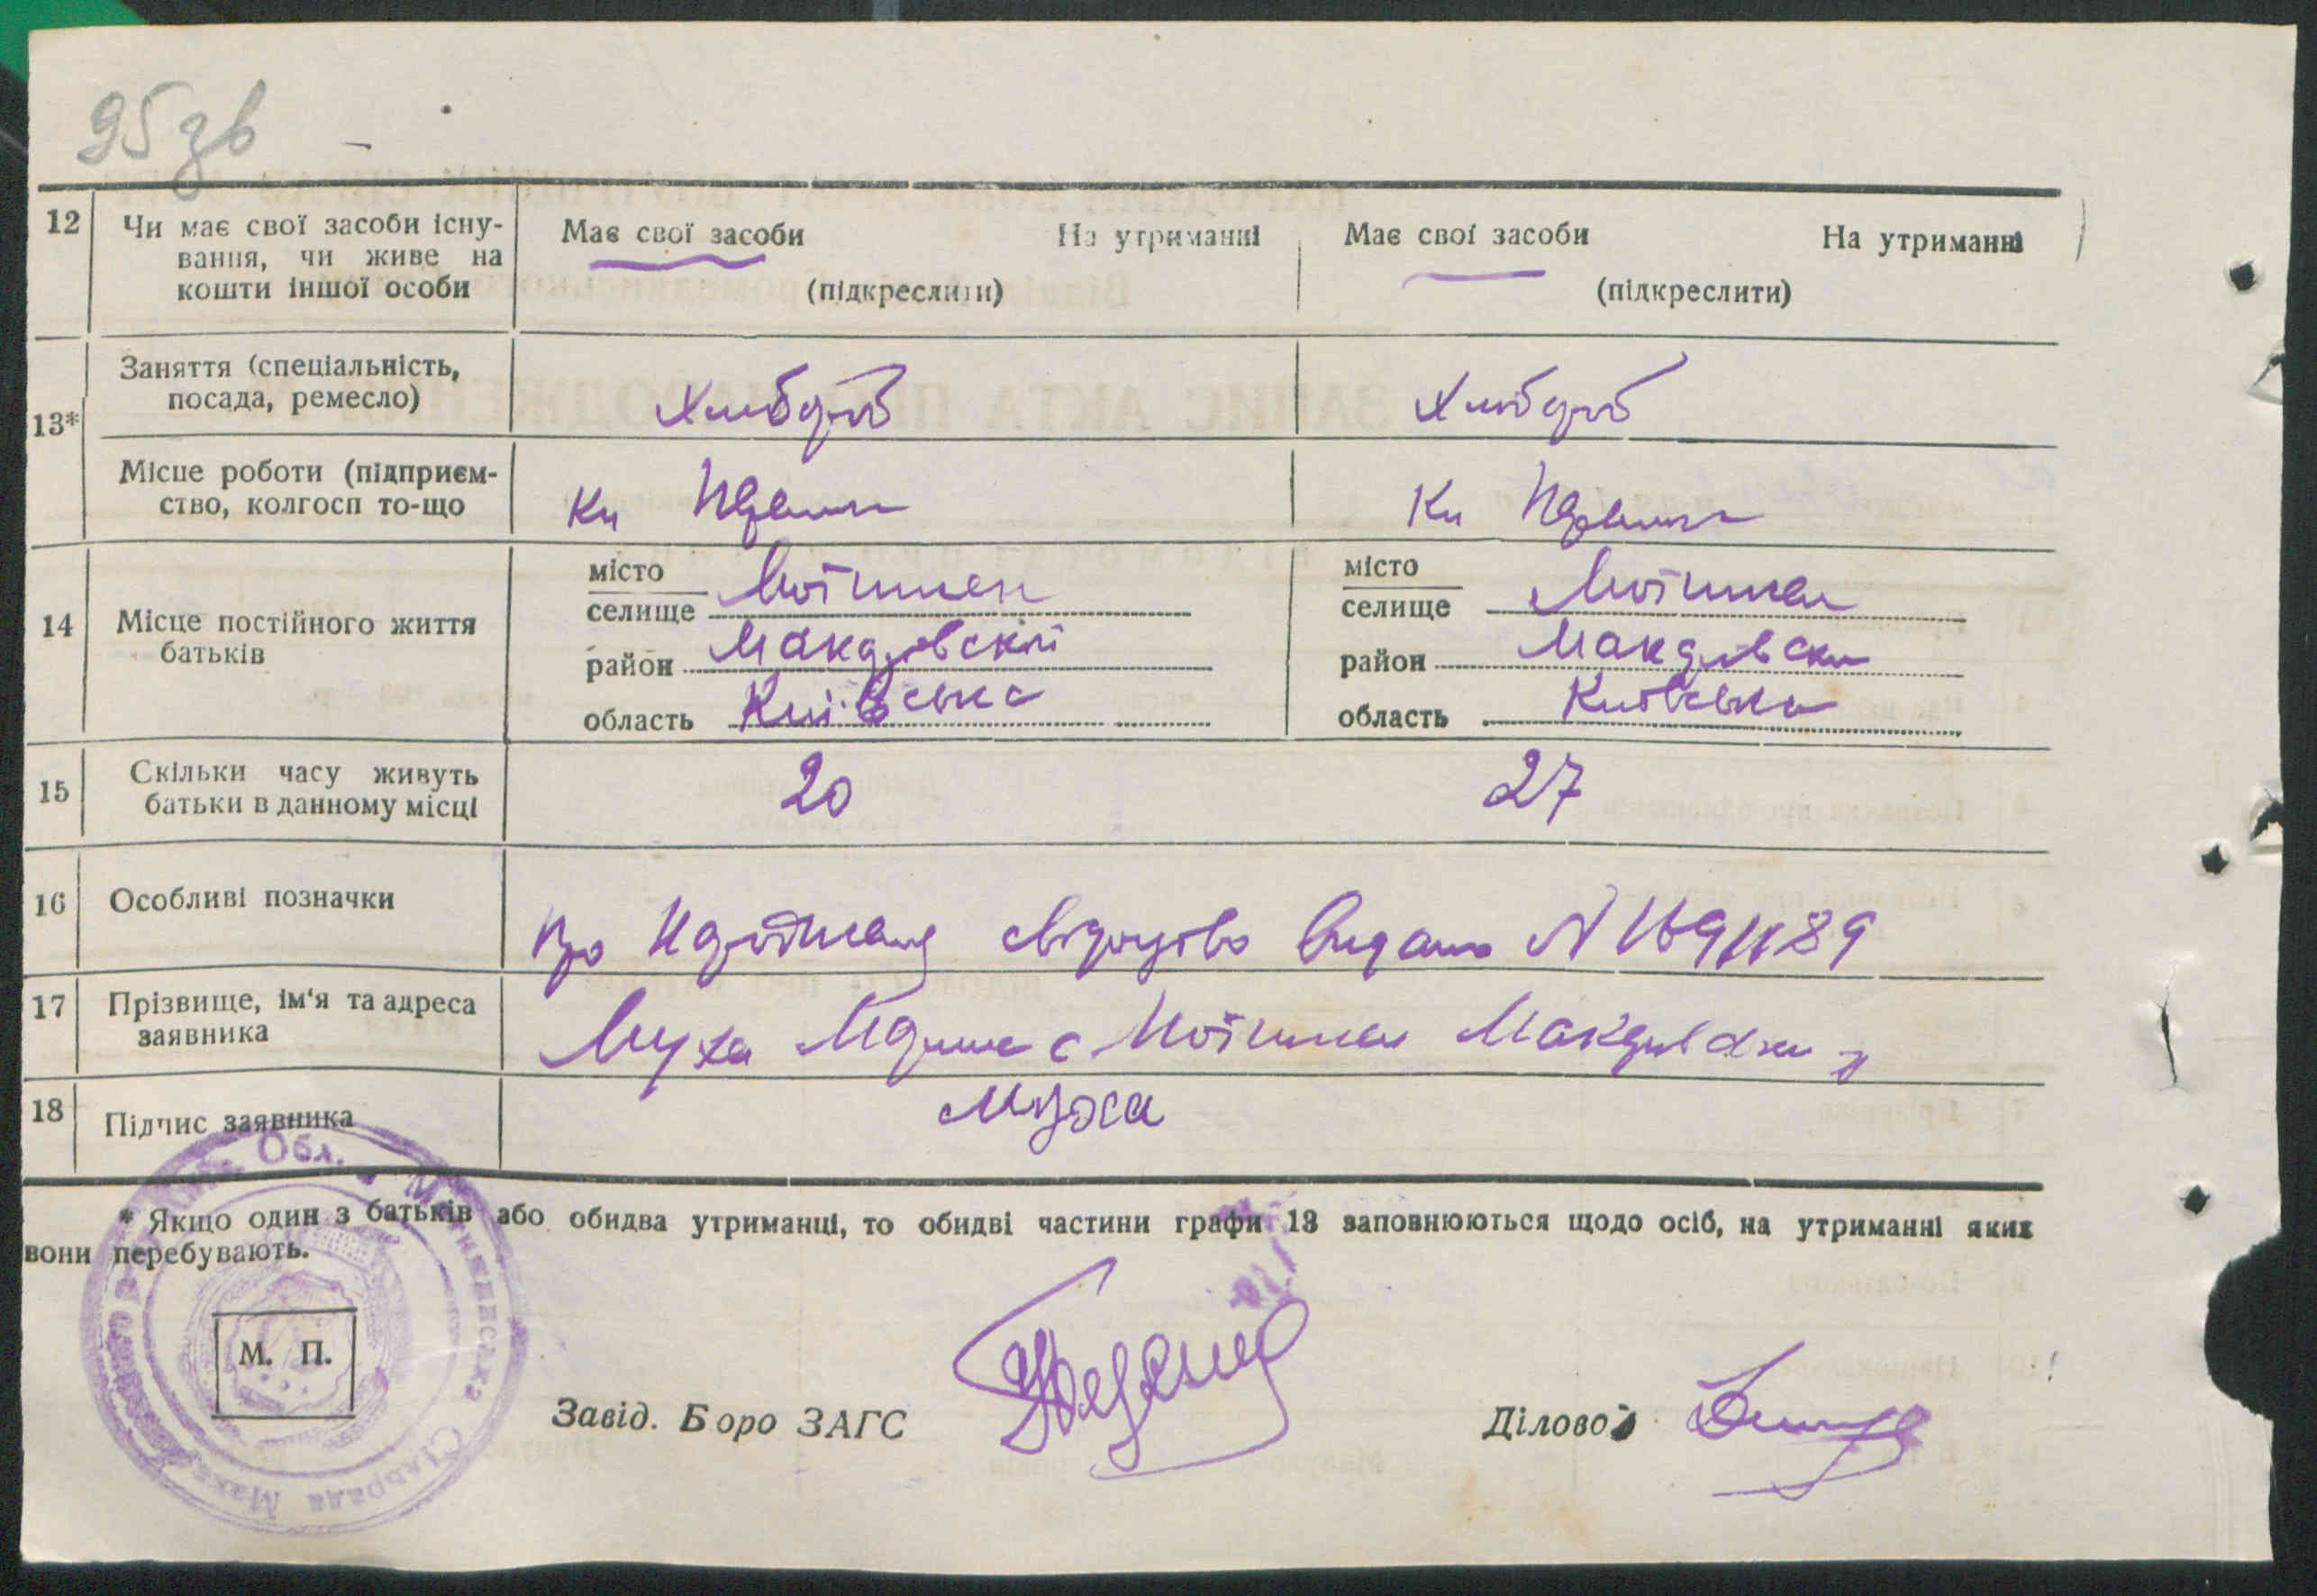 95 зв
12 Чи має свої засоби існу-
вання, чи живе на
кошти іншої особи
Має свої засоби На утриманні
(підкреслити)
Має свої засоби На утриманні
(підкреслити)
13*
Заняття (спеціальність,
посада, ремесло)
Хлібороб
Хлібороб
Місце роботи (підприєм-
ство, колгосп то-що
14 Місце постійного життя
батьків
місто
селище Мотижин
район Макарівский
область Київська
місто
селище Мотижин
район Макарівски
область Київська
15 Скільки часу живуть
батьки в данному місці
20
27
16 Особливі позначки
про видано N
17 Прізвище, ім'я та адреса
заявника
Муха с Мотижин
18 Підпис заявника
Муха
* Якщо один з батьків або обидва утриманці, то обидві частини графи 13 заповнюються щодо осіб, на утриманні яких
вони перебувають.
Обл.
Сільрада
М. П.
Завід. Боро ЗАГС
Діловод